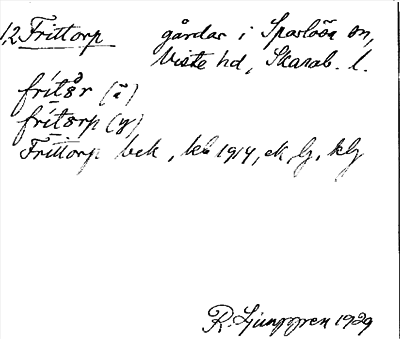 1,2 Frittorp gårdar i Sparlösa sn,
Viste hd, Skarab. l.
frítår (ä)
frítorp (y)
Frittorp bek, kb 1914, ek, lg, klg
R. Ljunggren 1929